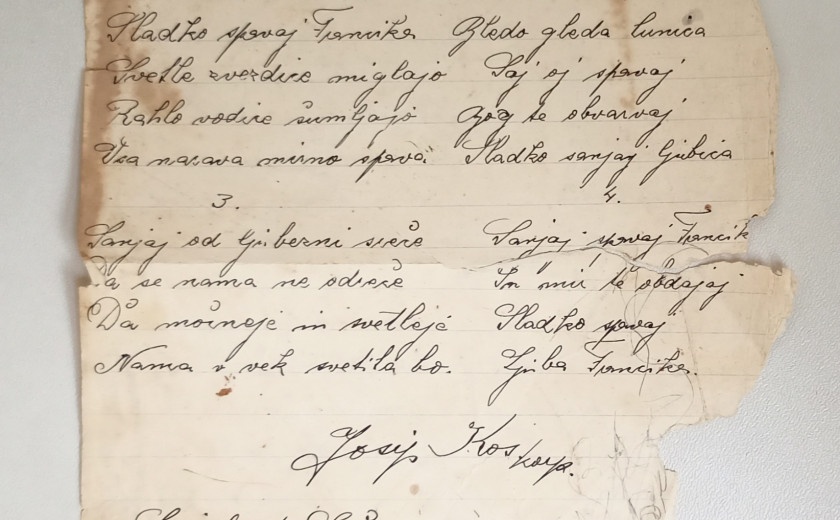 Sladko spavaj Francika
Svetle zvezdice miglajo
Rahlo vodice šumljajo
Vsa narava mirno spava.
Bledo gleda lunica
Saj oj spavaj
Bog te obvarvaj
Sladko sanjaj ljubica
3.
Sanjaj od ljubezni sreče
Da se nama ne odreče
Da močneje in svetleje
Nama v vek svetila bo.
4.
Sanjaj spavaj Francik
In mir te obdajaj
Sladko spavaj
Ljuba Francika.
Josip Kos